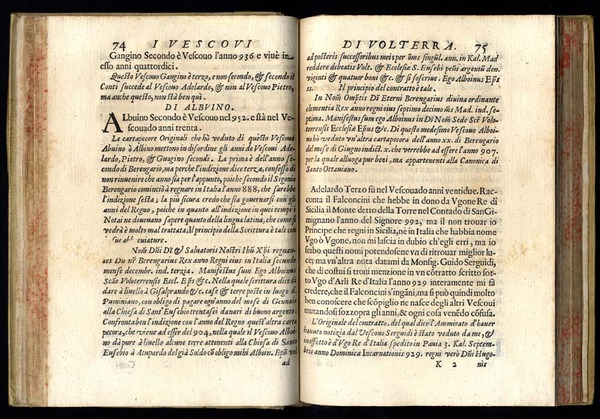 74 I VESCOVI
Gangino Secondo è Vescouo l'anno 936 e viuè in
esso anni quattordici.
Questo Vescouo Gangino è terzo, e non secondo, & secondo il
Conti succede al Vescouo Adelardo, & non al Vescouo Pietro,
ma anche questo, non stà ben quì.
DI ALBVINO.
Abuino Secondo è Vescouo nel 952. e stà nel Ve-
scouado anni trenta.
Le cartapecore Originali che hò veduto di questo Vescouo
Abuino à Albino mettono in disordine gli anni de Vescoui Ade-
lardo, Pietro, & Guagino secondi. La prima è dell'anno se-
condo di Berengario, ma perche l'indizione dice terza, confesso di
non rinuenire che anno sia per l'appunto, poiche secondo il Sigonio
Berengario cominciò à regnare in Italia l'anno 888, che sarebbe
l'indizione sesta; la più sicura credo che sia gouernarsi con gli
anni del Regno, poiche in quanto all'indizione in quei tempi i
Notai ne doueuano sapere quanto della lingua latina, che come si
vedrà è molto mal trattata, il principio della Scrittura è tale con
sue abbreuiature.
Nom Dñi DI & Saluatoris Nostri Ihũ Xp̃i regnan-
tes Dn nr̃ Berengarius Rex anno Regni eius in Italia secundo
mense decembr. ind. tertzia. Manifestus sum Ego Albuinus
Scix Volterrensis Eccl. Ep̃s &c. Nella quale scrittura dice di
dare à liuello à Gisalprando &c. case & terre poste in luogo d.
Puminiano, con obligo di pagare ogni anno del mese di Gennaio
alla Chiesa di Sant'Eusebio trentasei danari di buono argento.
Confronta ben l'indizione con l'anno del Regno quest'altra carta-
pecora, che viene ad esser del 904, nella quale il Vescouo Albui-
no dà pure à liuello alcune terre attenenti alla Chiesa di Santo
Eusebio à Atupardo del già Soldo cõ obligo mihi Albuin. Ep̃s vel
ad
DI VOLTERRA. 75
ad posteris successoribus meis per õms singul. ann. in Kal. Mad
reddere debeatis Volt. & Ecclesiæ S. Eusebi peñi argento den.
viginti & quatuor boni &c. & si soscriue. Ego Alboinus Ep̃s
Il principio del contratto è tale.
In Nom̃ Om̃ptis DI Eterni Berengarius diuina ordinante
clementia Rex anno regni eius septimo decimo m̃s Mad. ind. se-
ptima. Manifestus sum ego Alboinus in DI Nom̃ Sede Scẽ Vola-
terrensis Ecclesia Ep̃us &c. Di questo medesimo Vescouo Alboi-
no hò veduto vn'altra cartapecora dell'anno xx. di Berengario
del mese di Giugno indict. x. che verrebbe ad essere l'anno 907.
per la quale alluoga pur beni, ma appartenenti alla Canonica di
Santo Ottauiano.
Adelardo Terzo fù nel Vescouado anni ventidue. Rac-
conta il Falconcini che hebbe in dono da Vgone Re di
Sicilia il Monte detto della Torre nel Contado di San Gi-
mignano l'anno del Signore 992, ma il non trouar io
Principe che regni in Sicilia, ne in Italia che habbia nome
Vgo ò Vgone, non mi lascia in dubio ch'egli erri, ma io
serbo questi nomi potendosene vn dì ritrouar miglior la-
te; ma vn'altra nota datami da Monsig. Guido Serguidi,
che di costui si troui menzione in vn cõtratto scritto sot-
to Vgo d'Arli Re d'Italia l'anno 929 interamente mi fà
credere, che il Falconcini s'ingãni, ma si può quindi molto
ben conoscere che scõpiglio ne nasce degli altri Vescoui
mutandosi sozzopra gli anni, & ogni cosa venẽdo cõfusa.
L'Originale del contratto, del qual dice l'Ammirato d'hauer
hauuto notizia dal Vescouo Serguidi è stato veduto da me, & è
in effetto è d'Vgo Re d'Italia spedito in Pauia 3. Kal. Septem-
bris anno Dominicæ Incarnationis 929. regni verò Dñi Hugo-
K 2 nis